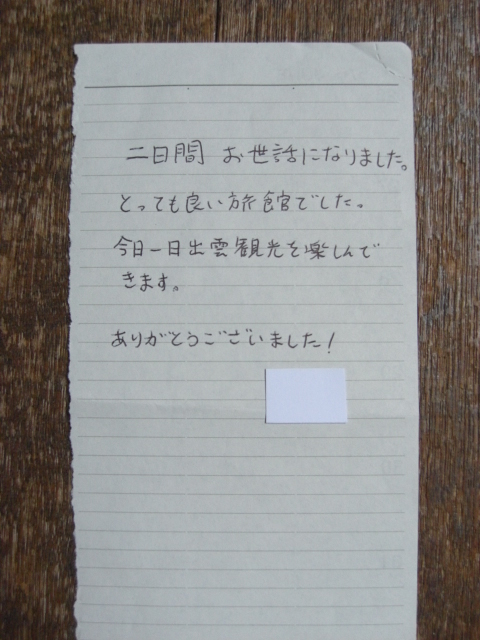 二日間 お世話になりました。
とっても良い旅館でした。
今日一日出雲観光を楽しんで
きます。
ありがとうございました!